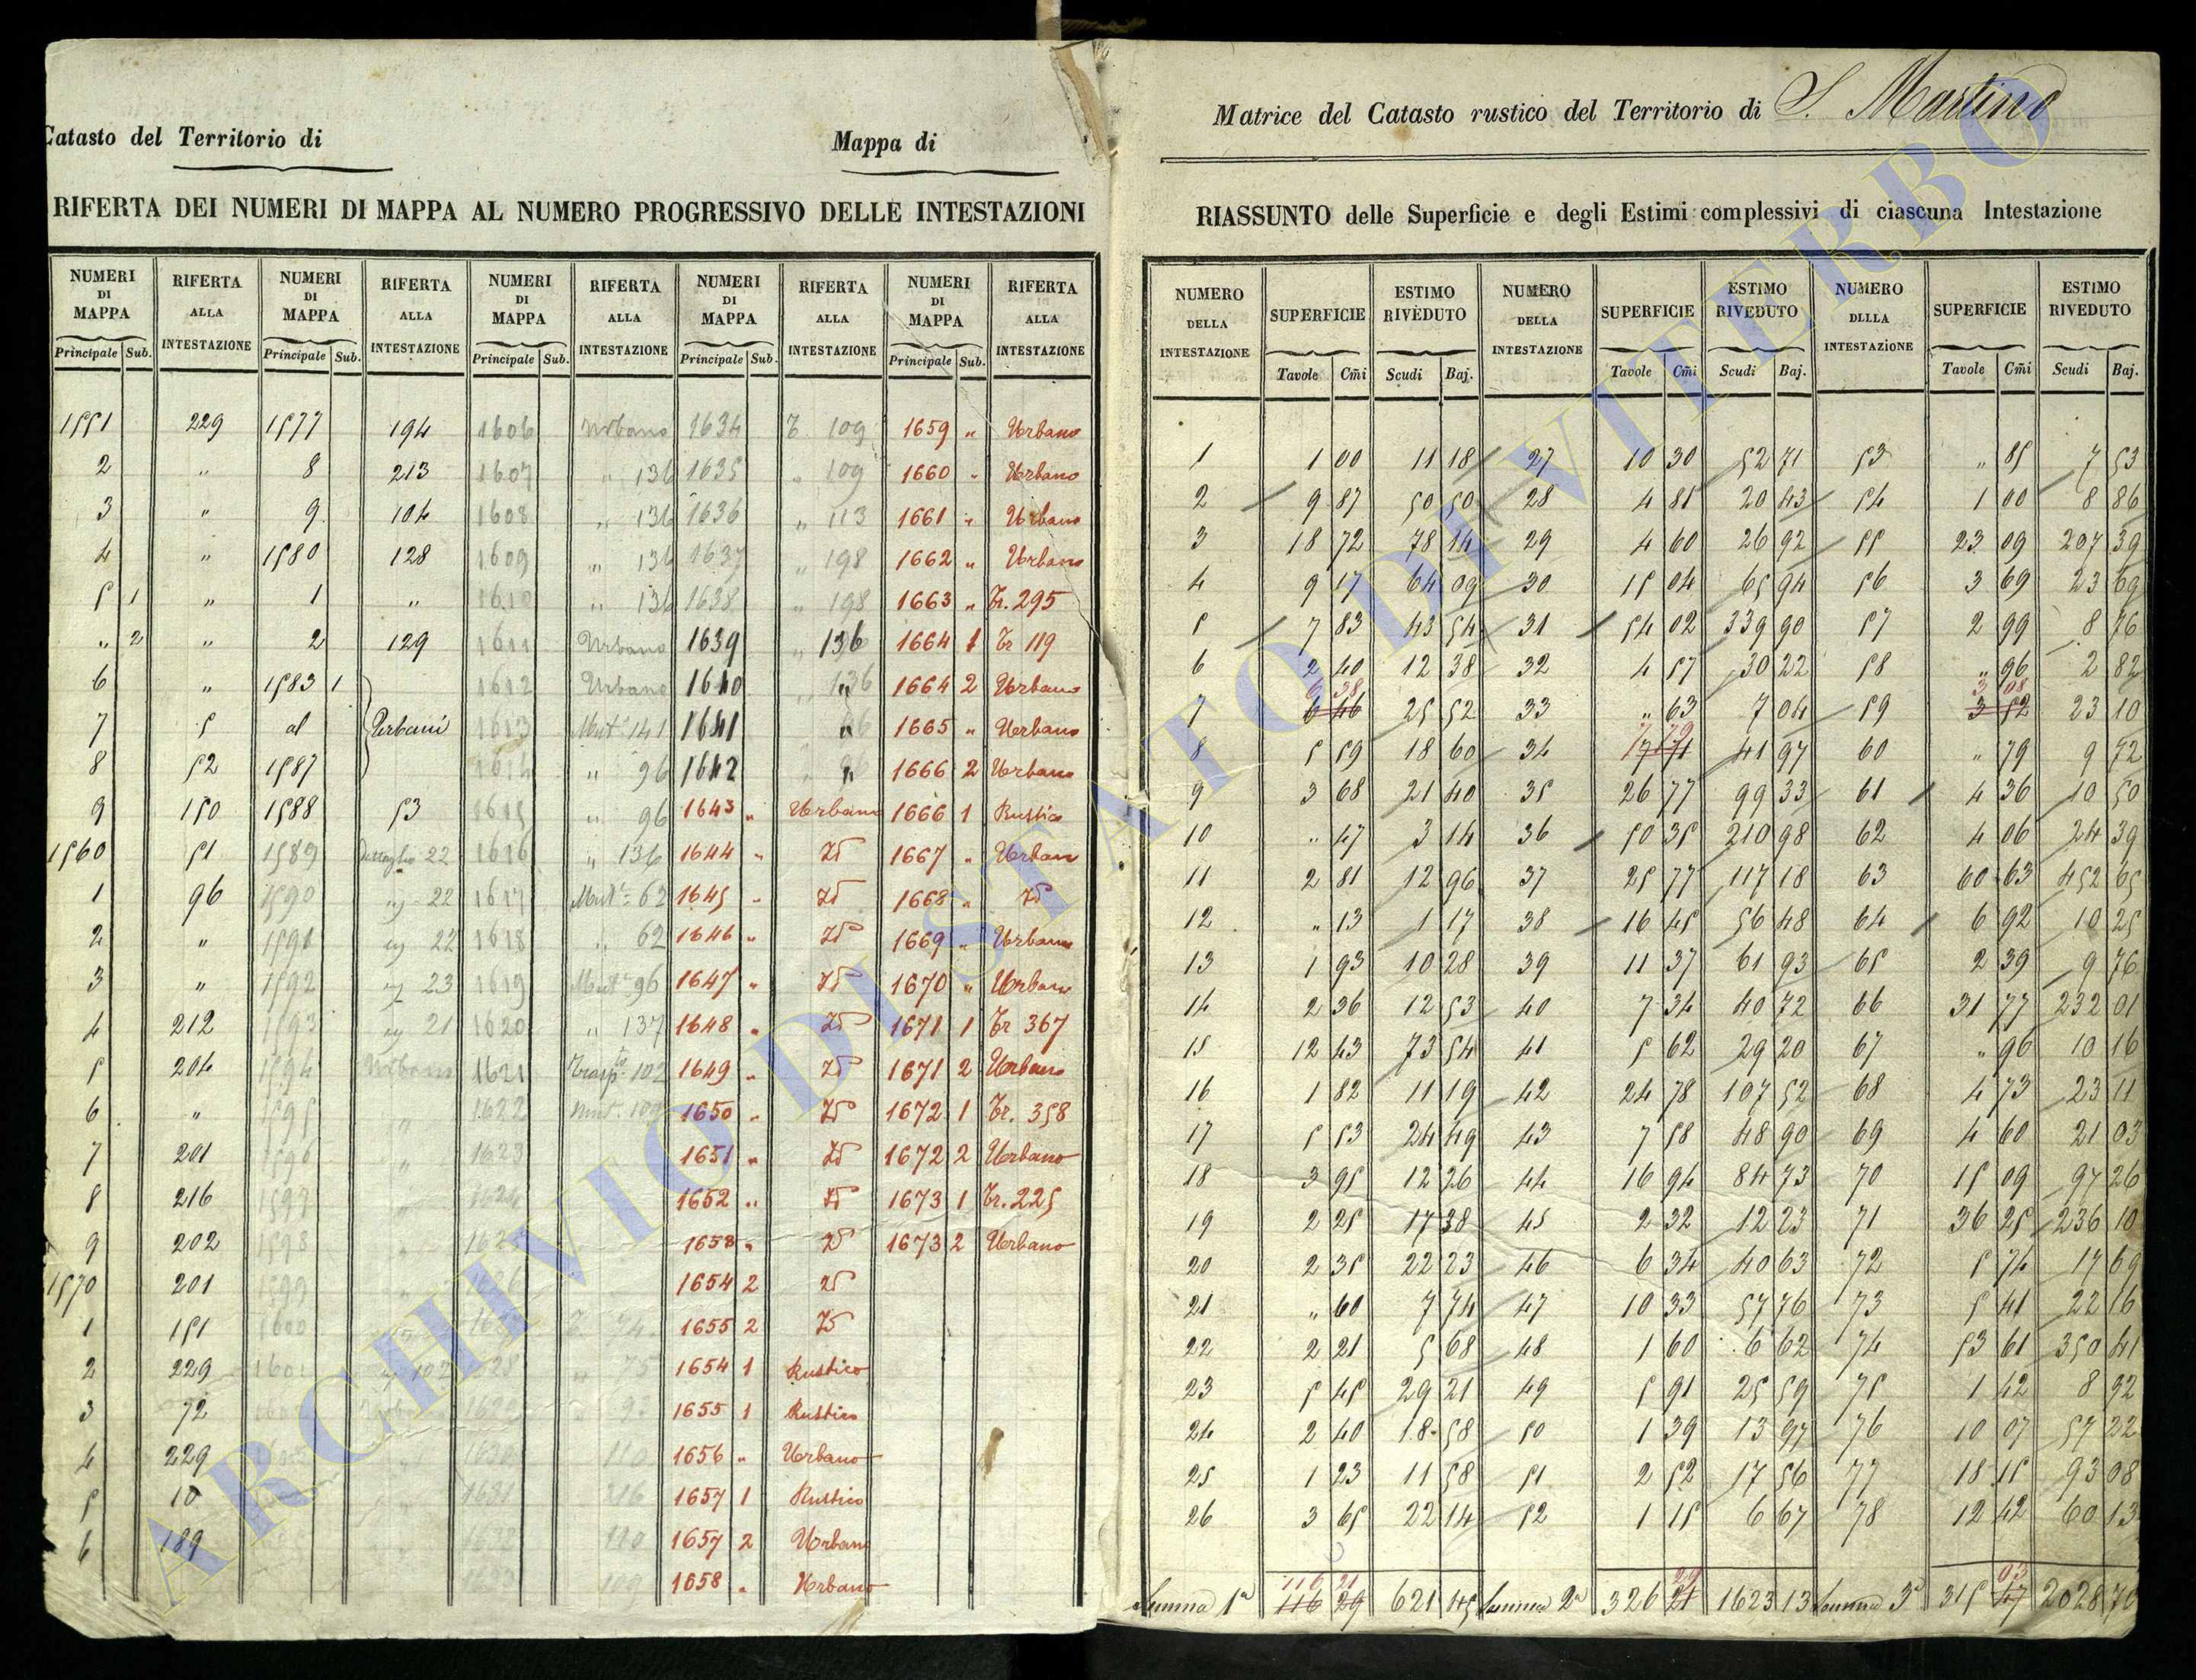 Catasto del Territorio di
Mappa di
RIFERTA DEI NUMERI DI MAPPA AL NUMERO PROGRESSIVO DELLE INTESTAZIONI
NUMERI DI MAPPA RIFERTA ALLA INTESTAZIONE NUMERI DI MAPPA RIFERTA ALLA INTESTAZIONE NUMERI DI MAPPA RIFERTA ALLA INTESTAZIONE NUMERI DI MAPPA RIFERTA ALLA INTESTAZIONE NUMERI DI MAPPA RIFERTA ALLA INTESTAZIONE
Principale Sub. Principale Sub. Principale Sub. Principale Sub. Principale Sub.
1551 229 1577 194 1606 Urbano 1634 T 109 1659 " Urbano
2 " 8 213 1607 " 136 1635 " 109 1660 " Urbano
3 " 9 104 1608 " 136 1636 " 113 1661 " Urbano
4 " 1580 128 1609 " 136 1637 " 198 1662 " Urbano
5 1 " 1 " 1610 " 136 1638 " 198 1663 " Tr. 295
" 2 " 2 129 1611 Urbano 1639 " 136 1664 1 Tr 119
6 " 1583 1 1612 Urbano 1640 " 1664 2 Urbano
7 5 al Urbani 1613 Mut. 141 1641 " 1665 " Urbano
8 52 1587 1614 " 96 1642 " 1666 2 Urbano
9 150 1588 53 1615 " 96 1643 " Urbano 1666 1 Rustico
1560 51 1589 Dettaglio 22 1616 " 136 1644 " Id 1667 " Urbano
1 96 1590 22 1617 Mut. 62 1645 " Id 1668 " Id
2 " 1591 22 1618 " 62 1646 " Id 1669 " Urbano
3 " 1592 23 1619 Mut. 96 1647 " Id 1670 " Urbano
4 212 1593 21 1620 " 137 1648 " Id 1671 1 Tr 367
5 204 1594 Urbano 1621 Trasp. 102 1649 " Id 1671 2 Urbano
6 " 1595 " 1622 1650 " Id 1672 1 Tr. 358
7 201 1596 " 1623 1651 " Id 1672 2 Urbano
8 216 1597 " 1624 1652 " Id 1673 1 Tr. 225
9 202 1598 1653 " Id 1673 2 Urbano
1570 201 1599 1654 2 Id
1 151 1600 74 1655 2 Id
2 229 1601 102 75 1654 1 Rustico
3 72 1655 1 Rustico
4 229 1630 110 1656 " Urbano
5 10 1631 216 1657 1 Rustico
6 189 110 1657 2 Urbano
109 1658 " Urbano
Matrice del Catasto rustico del Territorio di S. Martino
RIASSUNTO delle Superficie e degli Estimi complessivi di ciascuna Intestazione
NUMERO DELLA INTESTAZIONE SUPERFICIE ESTIMO RIVEDUTO NUMERO DELLA INTESTAZIONE SUPERFICIE ESTIMO RIVEDUTO NUMERO DLLLA INTESTAZIONE SUPERFICIE ESTIMO RIVEDUTO
Tavole Cm̃i Scudi Baj. Tavole Cm̃i Scudi Baj. Tavole Cm̃i Scudi Baj.
1 1 00 11 18 27 10 30 52 71 53 " 85 7 53
2 9 87 50 50 28 4 81 20 43 54 1 00 8 86
3 18 72 78 14 29 4 60 26 92 55 23 09 207 39
4 9 17 64 09 30 15 04 65 94 56 3 69 23 69
5 7 83 43 54 31 54 02 339 90 57 2 99 8 76
6 2 40 12 38 32 4 57 30 22 58 " 96 2 82
6 38 3 08
7 6 46 25 52 33 " 63 7 04 59 3 52 23 10
7 79
8 5 59 18 60 34 7 71 41 97 60 " 79 9 72
9 3 68 21 40 35 26 77 99 33 61 4 36 10 50
10 " 47 3 14 36 50 35 210 98 62 4 06 24 39
11 2 81 12 96 37 25 77 117 18 63 60 63 452 65
12 " 13 1 17 38 16 45 56 48 64 6 92 10 25
13 1 93 10 28 39 11 37 61 93 65 2 39 9 76
14 2 36 12 53 40 7 34 40 72 66 31 77 232 01
15 12 43 73 54 41 5 62 29 20 67 " 96 10 16
16 1 82 11 19 42 24 78 107 52 68 4 73 23 11
17 5 53 24 49 43 7 58 48 90 69 4 60 21 03
18 3 95 12 26 44 16 94 84 73 70 15 09 97 26
19 2 25 17 38 45 2 32 12 23 71 36 25 236 10
20 2 35 22 23 46 6 34 40 63 72 5 74 17 69
21 " 60 7 74 47 10 33 57 76 73 5 41 22 16
22 2 21 5 68 48 1 60 6 62 74 53 61 350 41
23 5 45 29 21 49 5 91 25 59 75 1 42 8 92
24 2 40 18 58 50 1 39 13 97 76 10 07 57 22
25 1 23 11 58 51 2 52 17 56 77 18 15 93 08
26 3 65 22 14 52 1 15 6 67 78 12 42 60 13
116 21 29 03
Summa 1ª 116 29 621 45 Summa 2ª 326 21 1623 13 Summa 3ª 315 47 2028 70
ARCHIVIO DI STATO DI VITERBO